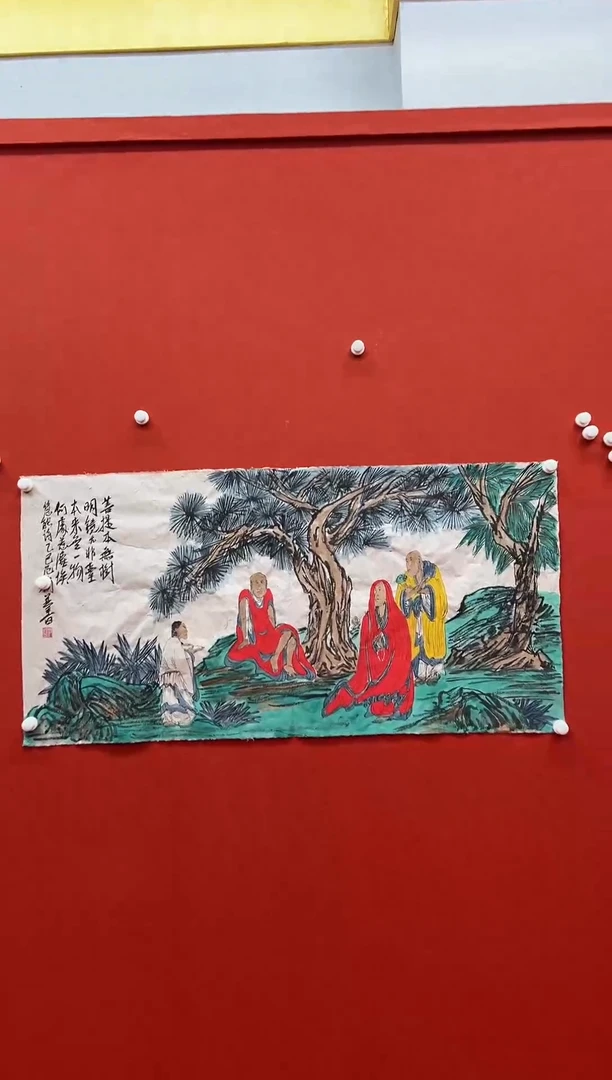 菩提本無樹
明鏡亦非臺
本来無一物
何處惹塵埃
慧能詩乙巳